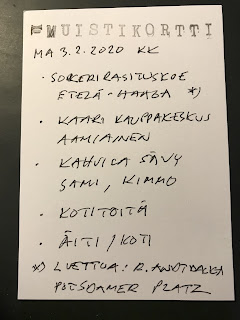 MUISTIKORTTI
MA 3.2.2020 KK
· SOKERIRASITUSKOE
ETELÄ-HAAGA *)
· KAARI KAUPPAKESKUS
AAMIAINEN
· KAHVILA SÄVY
SAMI, KIMMO
· KOTITÖITÄ
· ÄITI / KOTI
*) LUETTUA: R.
POTSDAMER PLATZ